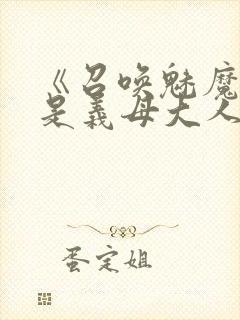 《召唤魅魔
是义母大人
蛋定姐